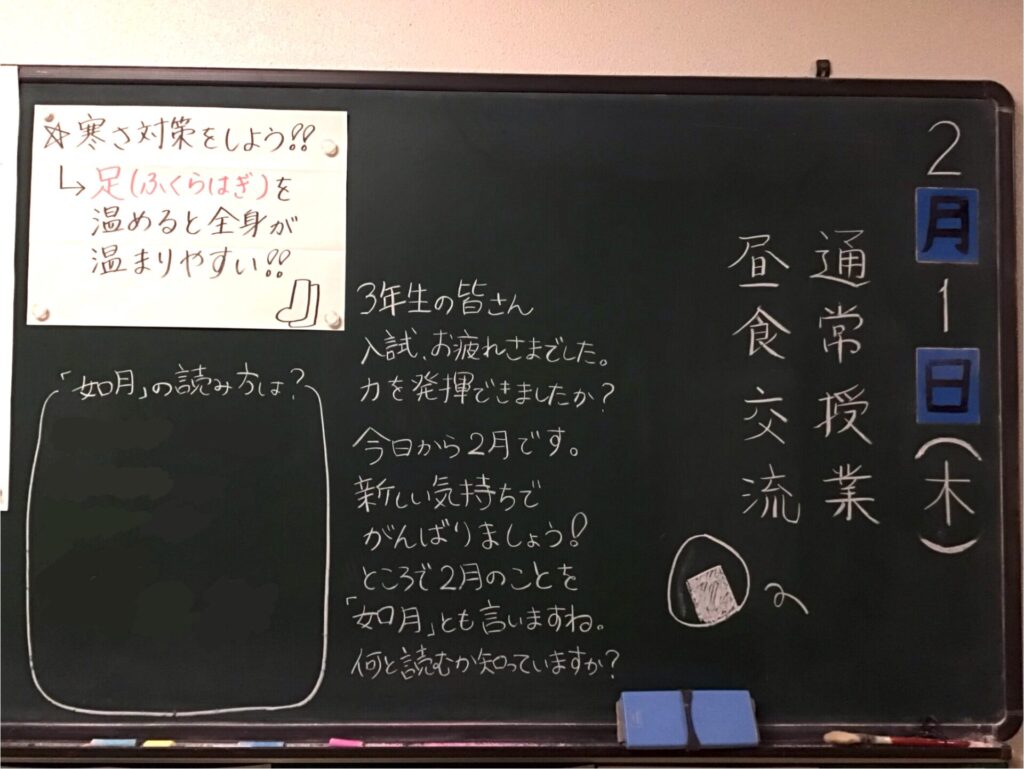 2月1日(木)
通常授業
昼食交流
☆寒さ対策をしよう!!
↳足(ふくらはぎ)を
温めると全身が
温まりやすい!!
3年生の皆さん
入試、お疲れさまでした。
力を発揮できましたか?
今日から2月です。
新しい気持ちで
がんばりましょう!
ところで2月のことを
「如月」とも言いますね。
何と読むか知っていますか?
「如月」の読み方は?